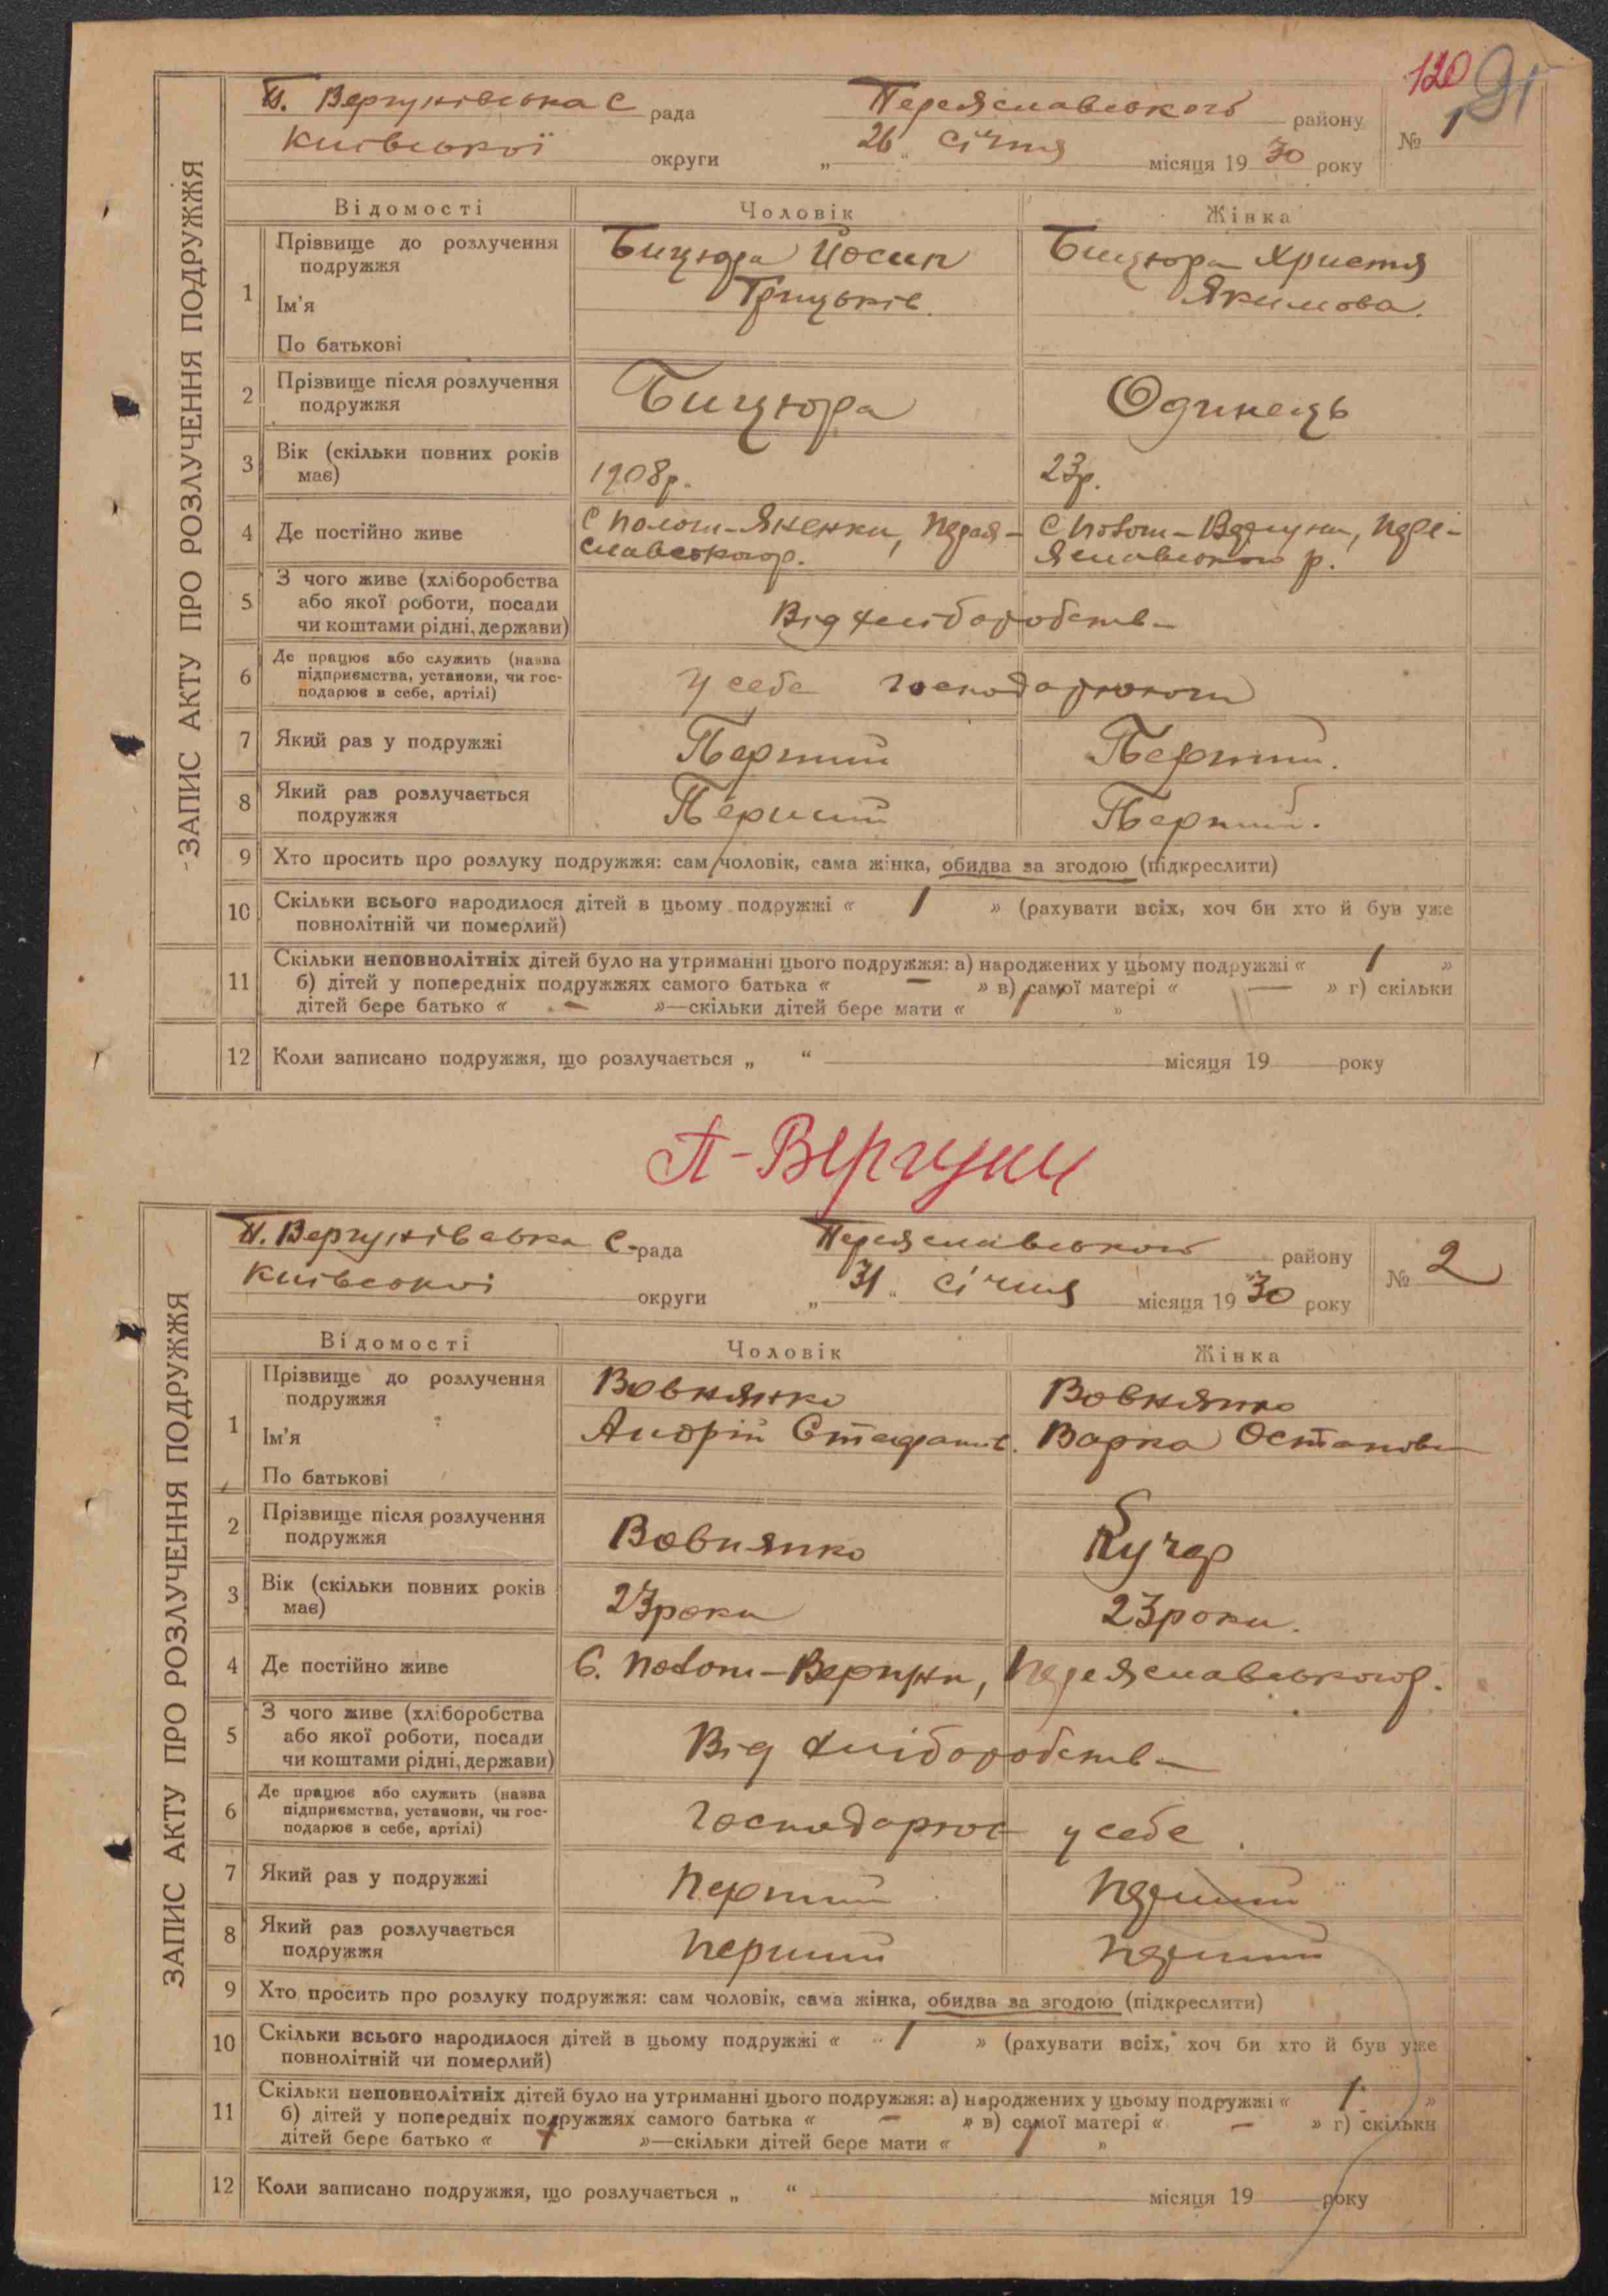 120 91
ЗАПИС АКТУ ПРО РОЗЛУЧЕННЯ ПОДРУЖЖЯ
П. Вергунівська С рада Переяславського району № 1
Київської округи „ 26 “ січня місяця 19 30 року
Відомості Чоловік Жінка
1 Прізвище до розлучення подружжя Бицюра Йосип Бицюра Христя
Ім'я Грицьків. Якимова.
По батькові
2 Прізвище після розлучення подружжя Бицюра Одинець
3 Вік (скільки повних років має) 1908р. 23р.
4 Де постійно живе С Полог-Яненки, Переяславського р. С Полог-Вергуни, Переяславського р.
5 З чого живе (хліборобства
або якої роботи, посади
чи коштами рідні, держави) Від хліборобств-
6 Де працює або служить (назва
підприємства, установи, чи гос-
подарює в себе, артілі) У себе
7 Який раз у подружжі Перший Перший.
8 Який раз розлучається
подружжя Перший Перший.
9 Хто просить про розлуку подружжя: сам чоловік, сама жінка, обидва за згодою (підкреслити)
10 Скільки всього народилося дітей в цьому подружжі « 1 » (рахувати всіх, хоч би хто й був уже
повнолітній чи померлий)
11 Скільки неповнолітніх дітей було на утриманні цього подружжя: а) народжених у цьому подружжі « 1 »
б) дітей у попередніх подружжях самого батька « — » в) самої матері « — » г) скільки
дітей бере батько « — »—скільки дітей бере мати « 1 »
12 Коли записано подружжя, що розлучається „ “ місяця 19 року
П-Вергуни
ЗАПИС АКТУ ПРО РОЗЛУЧЕННЯ ПОДРУЖЖЯ
П. Вергунівська С. рада Переяславського району № 2
Київської округи „ 31 “ січня місяця 19 30 року
Відомості Чоловік Жінка
1 Прізвище до розлучення
подружжя Вовнянко Вовнянко
Ім'я Андрій Стефанів. Варка Остапова
По батькові
2 Прізвище після розлучення
подружжя Вовнянко Кучер
3 Вік (скільки повних років
має) 23роки 23роки.
4 Де постійно живе С. Полог-Вергуни, Переяславського р.
5 З чого живе (хліборобства
або якої роботи, посади
чи коштами рідні, держави) Від хліборобств-
6 Де працює або служить (назва
підприємства, установи, чи гос-
подарює в себе, артілі) Господарює у себе.
7 Який раз у подружжі Перший Перший
8 Який раз розлучається
подружжя Перший Перший
9 Хто просить про розлуку подружжя: сам чоловік, сама жінка, обидва за згодою (підкреслити)
10 Скільки всього народилося дітей в цьому подружжі « 1 » (рахувати всіх, хоч би хто й був уже
повнолітній чи померлий)
11 Скільки неповнолітніх дітей було на утриманні цього подружжя: а) народжених у цьому подружжі « 1 »
б) дітей у попередніх подружжях самого батька « — » в) самої матері « — » г) скільки
дітей бере батько « »—скільки дітей бере мати « 1 »
12 Коли записано подружжя, що розлучається „ “ місяця 19 року